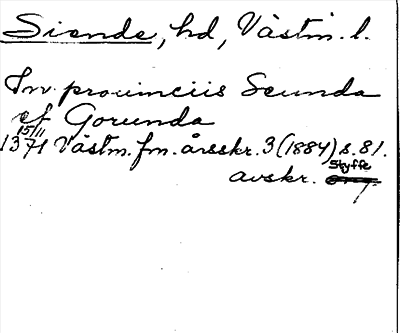 Siende, hd, Västm. l.
In prouinciis Scunda
et Gorunda
15/11 1371 Västm. fm. årsskr. 3 (1884) s. 81.
Styffe
avskr.